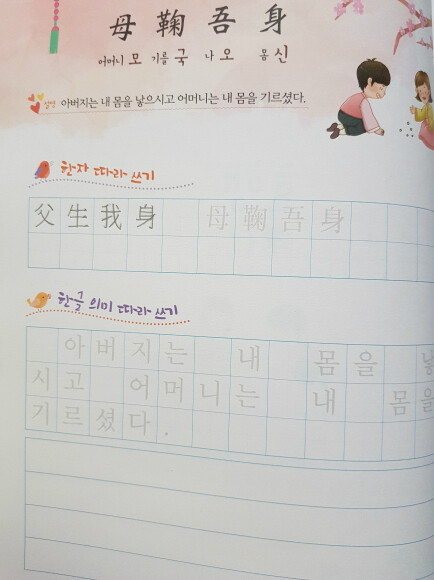 母 鞠 吾 身
어머니 모 기를 국 나 오 몸 신
설명 아버지는 내 몸을 낳으시고 어머니는 내 몸을 기르셨다.
한자 따라 쓰기
父 生 我 身 母 鞠 吾 身
한글 의미 따라 쓰기
아버지는 내 몸을 낳
시고 어머니는 내 몸을
기르셨다.